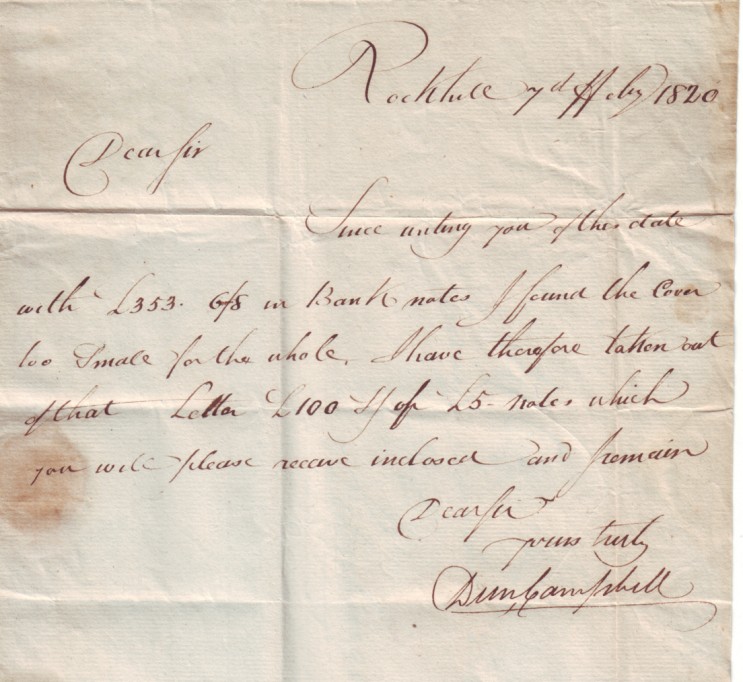 Rockhill 7d ffeby 1820
Dear Sir
Since writing you of this date
with £353. 6/8 in Bank notes I found the Cover
too Small for the whole, I have therefore taken out
of that Letter £100 Stg of £5 notes which
you will please receive inclosed and I remain
Dear Sir
yours truly
Dun Campbell